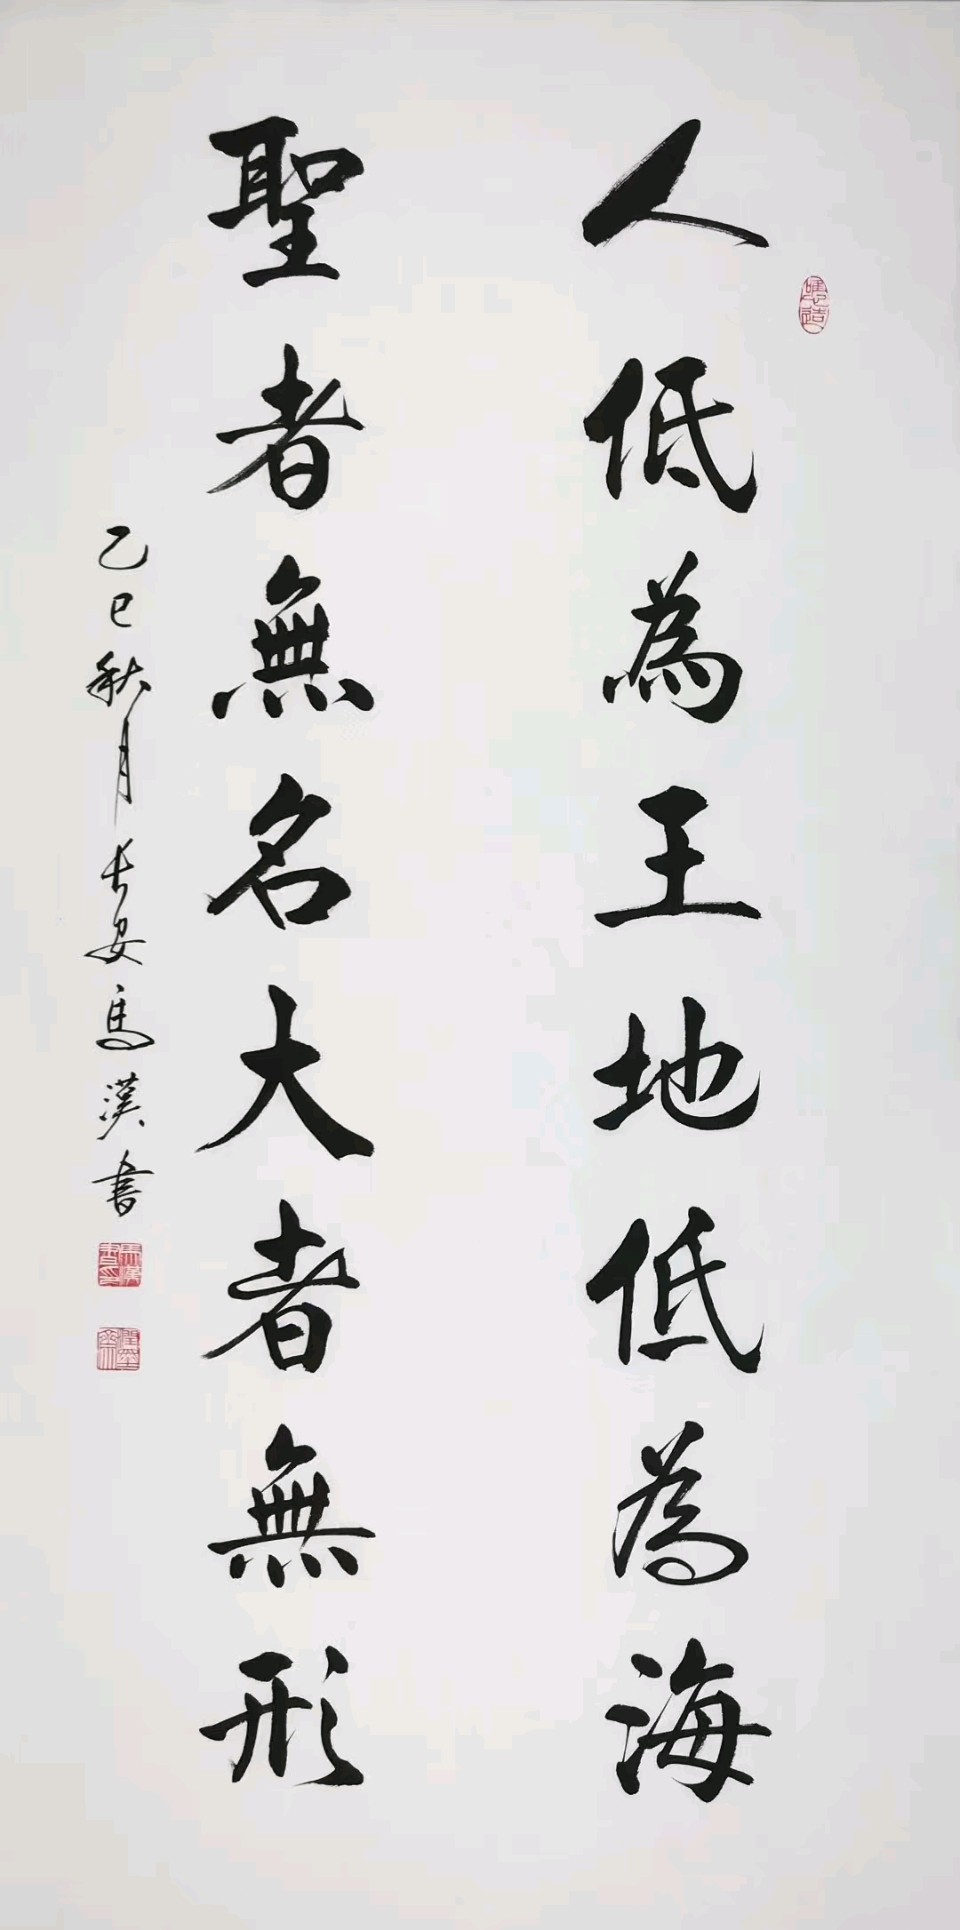 人低為王地低為海
聖者無名大者無形
乙巳秋月長安馬漢書